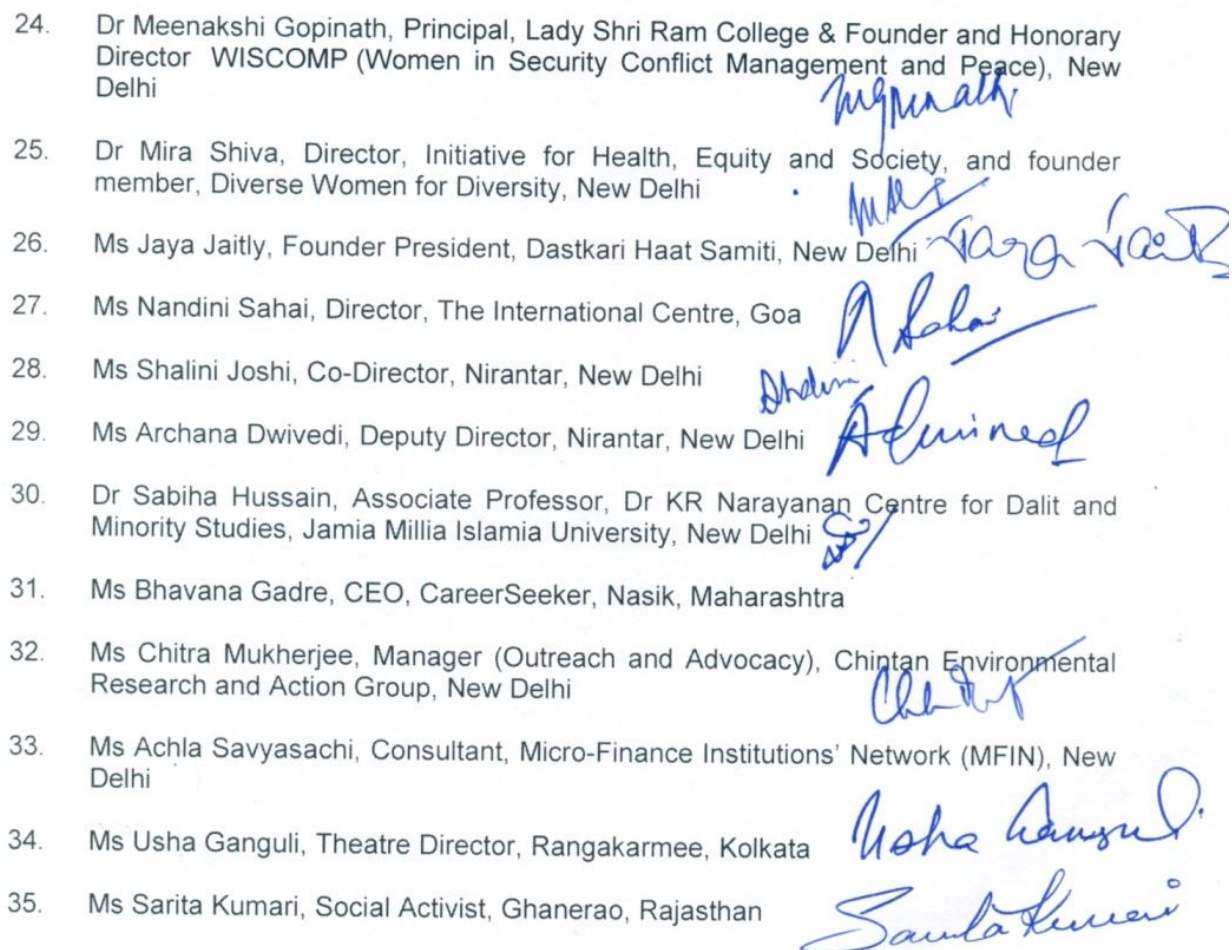 24. Dr Meenakshi Gopinath, Principal, Lady Shri Ram College & Founder and Honorary
Director WISCOMP (Women in Security Conflict Management and Peace), New
Delhi
25. Dr Mira Shiva, Director, Initiative for Health, Equity and Society, and founder
member, Diverse Women for Diversity, New Delhi
26. Ms Jaya Jaitly, Founder President, Dastkari Haat Samiti, New Delhi
27. Ms Nandini Sahai, Director, The International Centre, Goa
N Sahai
28. Ms Shalini Joshi, Co-Director, Nirantar, New Delhi
29. Ms Archana Dwivedi, Deputy Director, Nirantar, New Delhi
30. Dr Sabiha Hussain, Associate Professor, Dr KR Narayanan Centre for Dalit and
Minority Studies, Jamia Millia Islamia University, New Delhi
31. Ms Bhavana Gadre, CEO, CareerSeeker, Nasik, Maharashtra
32. Ms Chitra Mukherjee, Manager (Outreach and Advocacy), Chintan Environmental
Research and Action Group, New Delhi
33. Ms Achla Savyasachi, Consultant, Micro-Finance Institutions' Network (MFIN), New
Delhi
34. Ms Usha Ganguli, Theatre Director, Rangakarmee, Kolkata Usha Ganguli
35. Ms Sarita Kumari, Social Activist, Ghanerao, Rajasthan Sarita Kumari